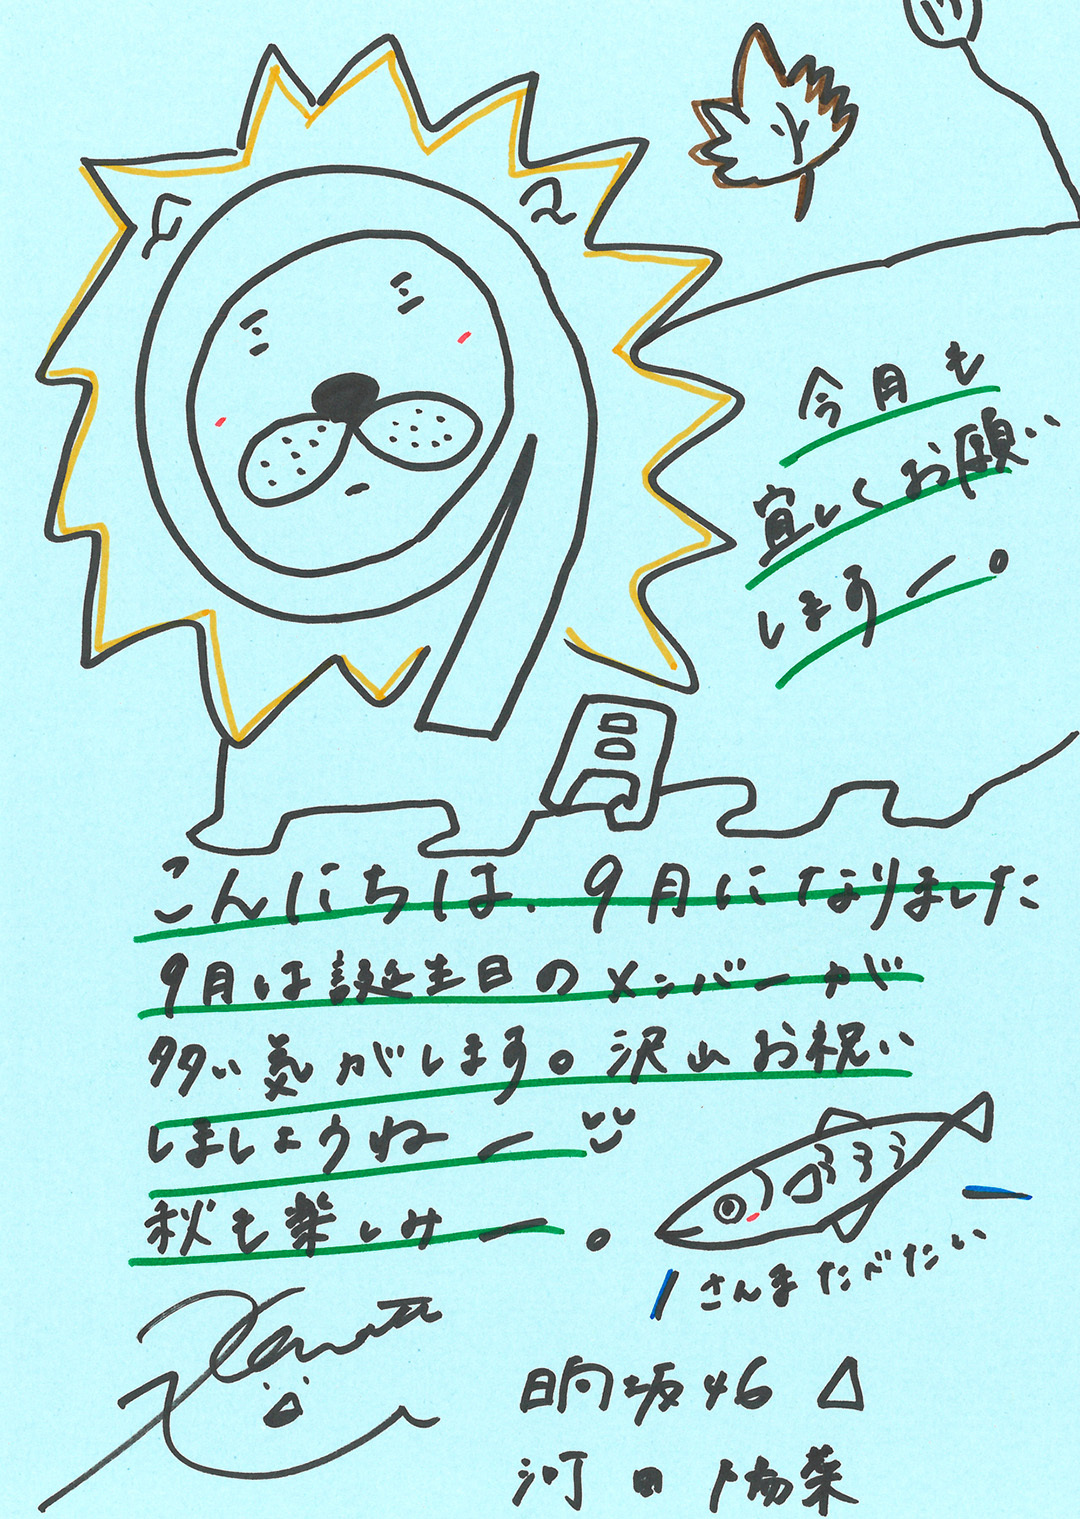 9月
今月も
宜しくお願い
しますー。
こんにちは、9月になりました
9月は誕生日のメンバーが
多い気がします。沢山お祝い
しましょうねー
秋も楽しみー。
さんまたべたい
日向坂46
河田陽菜